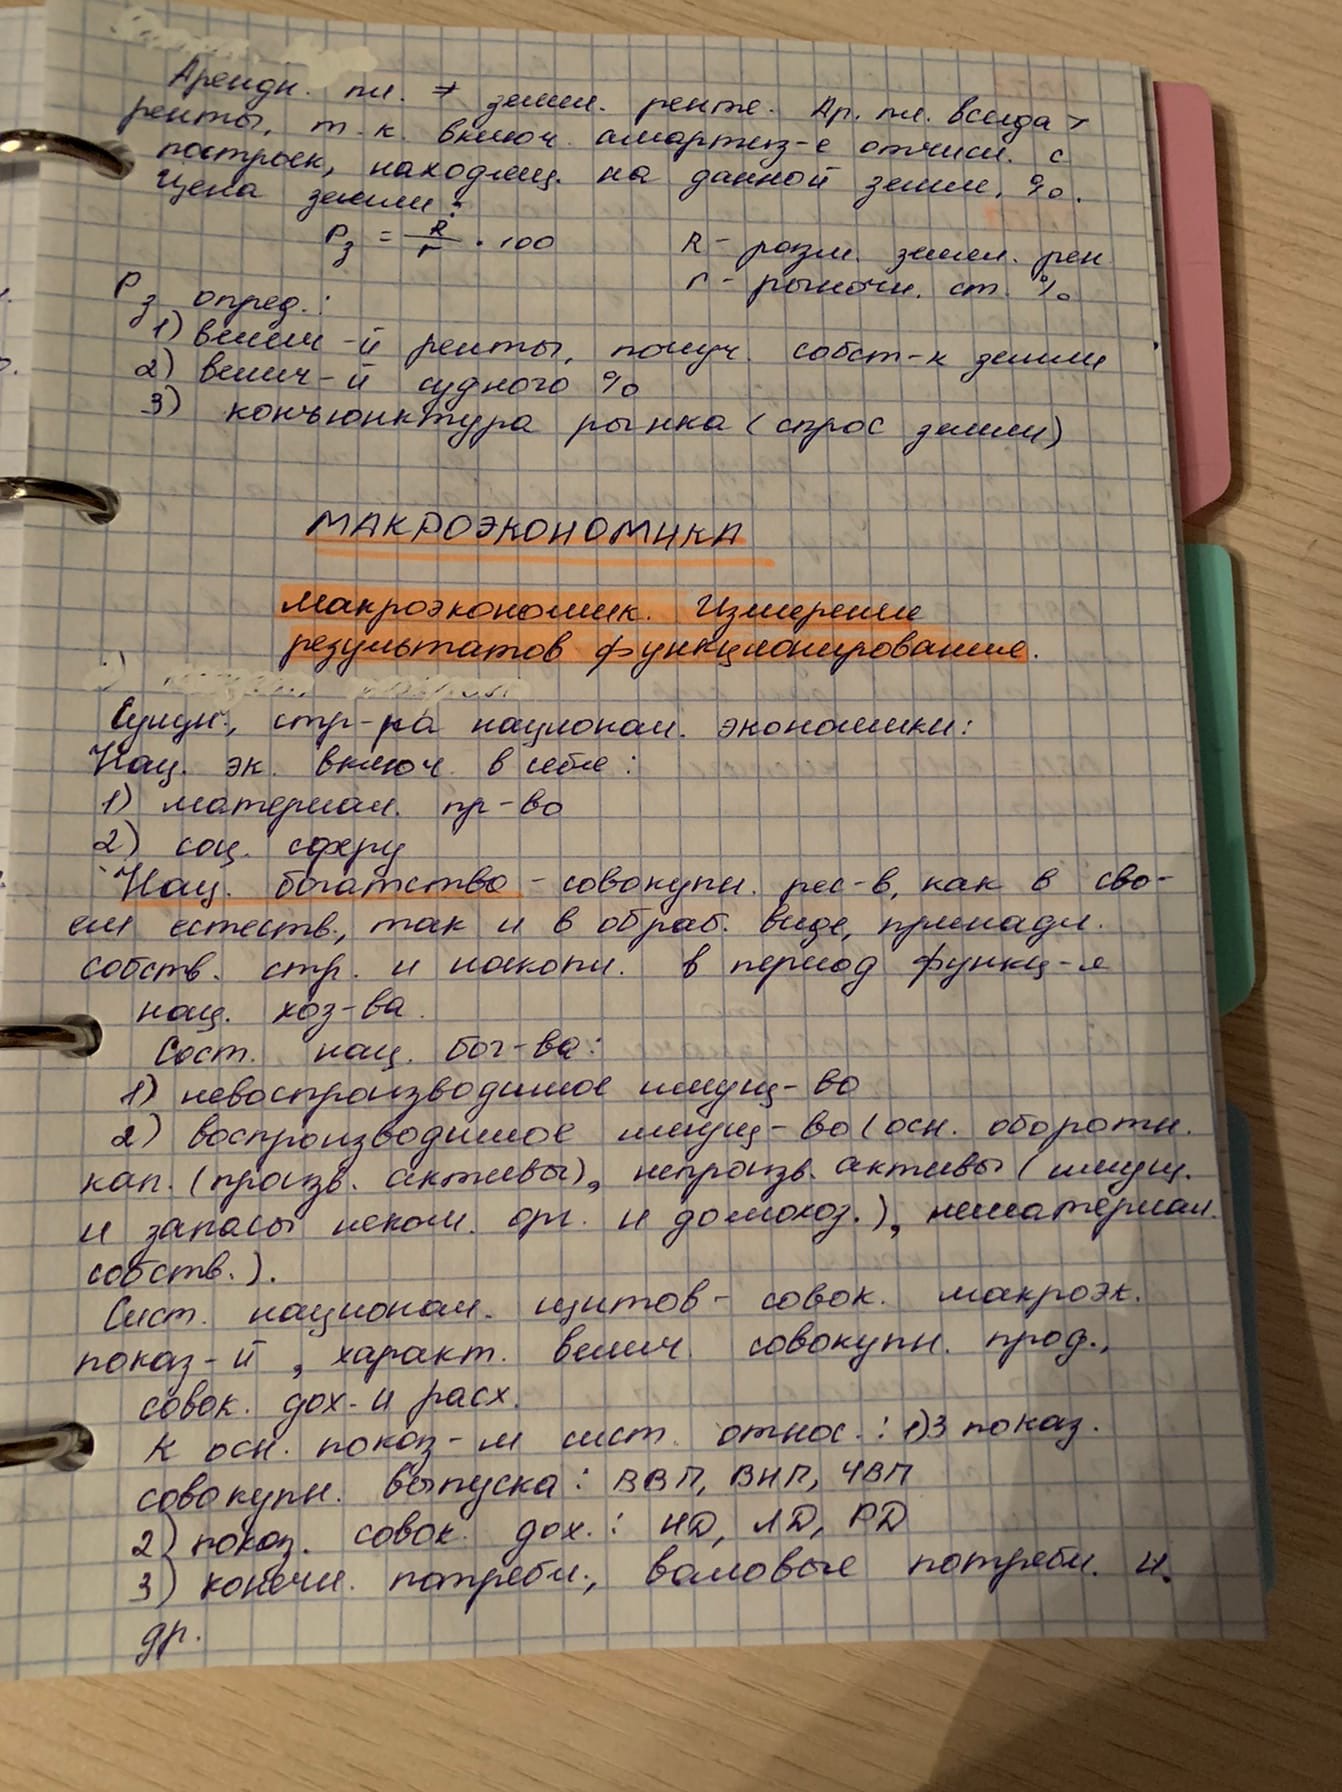 Арендн. пл. ≠ земел. ренте. Ар. пл. всегда >
ренты, т.к. включ. амортиз-е отчисл. с
построек, находящ. на данной земле, %.
Цена земли:
Pз = R/r · 100
R - разм. земел. рен
r - рыночн. ст. %
Pз опред.:
1) велич-й ренты, получ. собст-к земли
2) велич-й судного %
3) конъюнктура рынка (спрос земли)
МАКРОЭКОНОМИКА
Макроэкономик. Измерение
результатов функционирования.
Сущн., стр-ра национал. экономики:
Нац. эк. включ. в себе:
1) материал. пр-во
2) соц. сферу
Нац. богатство - совокупн. рес-в, как в сво-
ем естеств., так и в обраб. виде, принадл.
собств. стр. и накопл. в период функц-я
нац. хоз-ва.
Сост. нац. бог-ва:
1) невоспроизводимое имущ-во
2) воспроизводимое имущ-во (осн. оборотн.
кап. (произв. активы), непроизв. активы (имущ.
и запасы неком. орг. и домохоз.), нематериал.
собств.).
Сист. национал. щитов - совок. макроэк.
показ-й, характ. велич. совокупн. прод.,
совок. дох. и расх.
К осн. показ-м сист. относ.: 1) 3 показ.
совокупн. выпуска: ВВП, ВНП, ЧВП
2) показ. совок. дох.: НД, ЛД, РД
3) конечн. потребл., валовые потребл. и.
др.